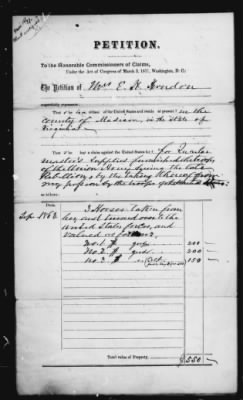 PETITION.
The Petition of Mrs E. H. Herndon
To the Honorable Commissioners of Claims,
Under the Act of Congress of March 3, 1871, Washington, D. C.:
respectfully represents:
That she is a citizen of the United States and resides at present in the
county of Madison, in the state of
Virginia
That has a claim against the United States for Quarter
master's supplies furnished the troops
of the Union Army during the late
Rebellion, by the taking thereof from
my possession by the troops
Date.
Sep. 1862
3 Horses taken from
her and turned over to the
United States forces, and
valued as follows.
No. 1 200
No. 2 200
No. 3 150
Total value of Property. $550